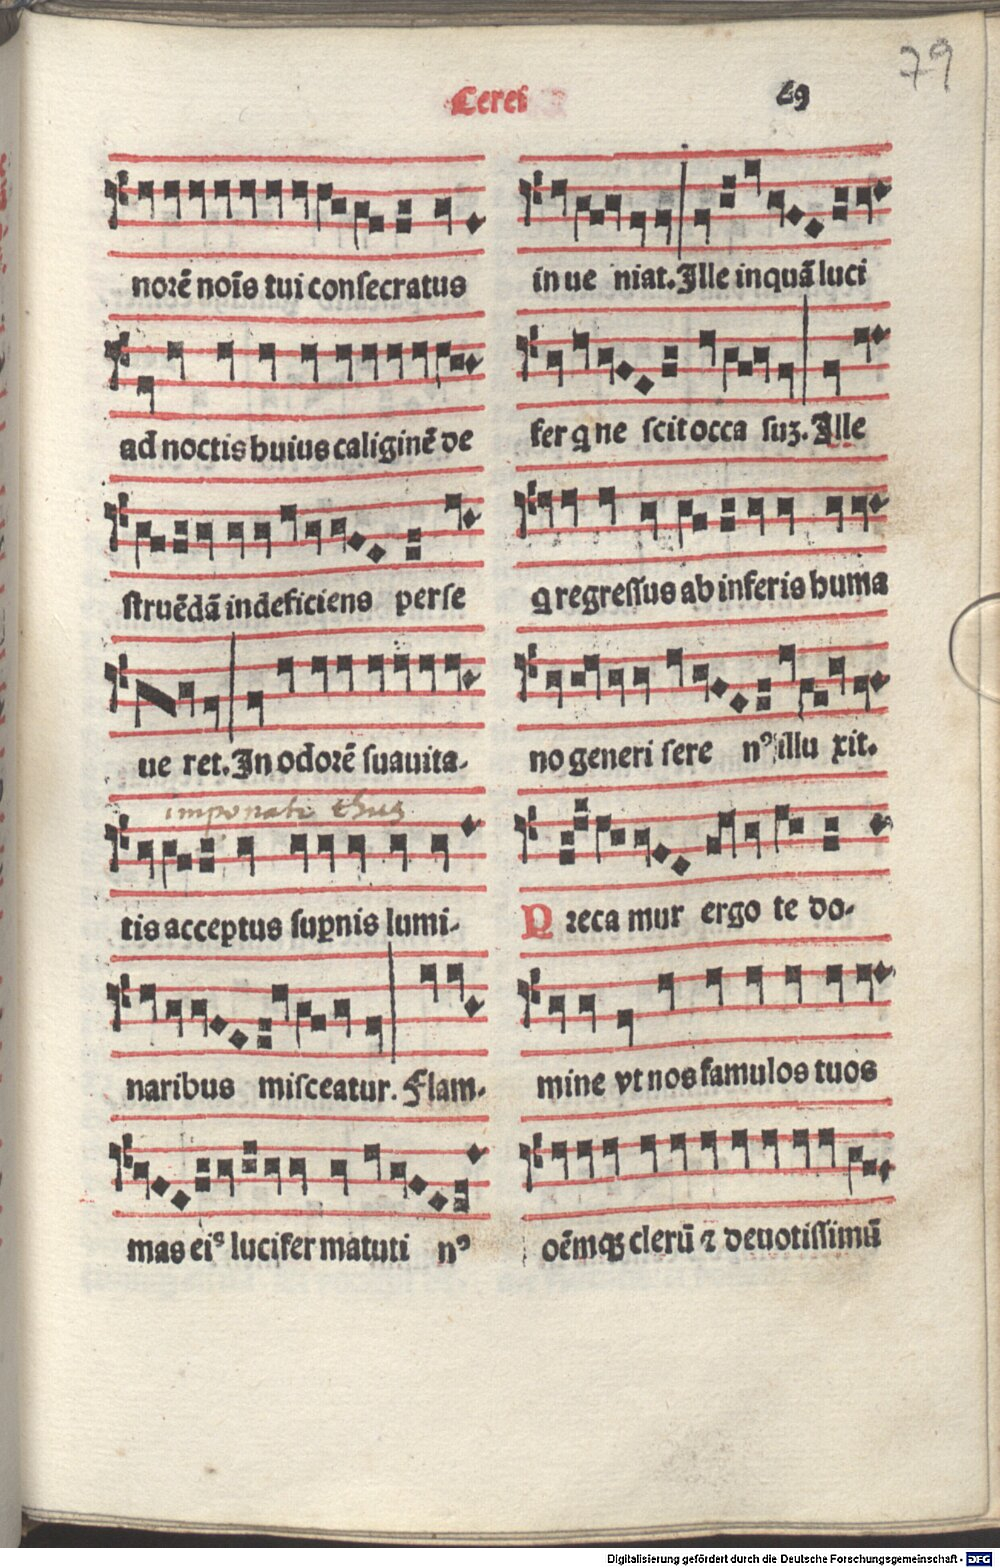 79
Cerei
69
norē noīs tui conſecratus
ad noctis huius caliginē de
ſtruēdā indeficiens perſe
ue ret. In odorē ſuauita-
imponatᵣ thus
tis acceptus ſuꝑnis lumi-
naribus miſceatur. Flam-
mas eiꝰ lucifer matuti nꝰ
in ue niat. Ille inquā luci
fer q ne ſcit occa ſuꝫ. Ille
q regreſſus ab inferis huma
no generi ſere nꝰ illu xit.
Preca mur ergo te do-
mine vt nos famulos tuos
oēmqꝫ clerū ⁊ deuotiſſimū
Digitalisierung gefördert durch die Deutsche Forschungsgemeinschaft - DFG